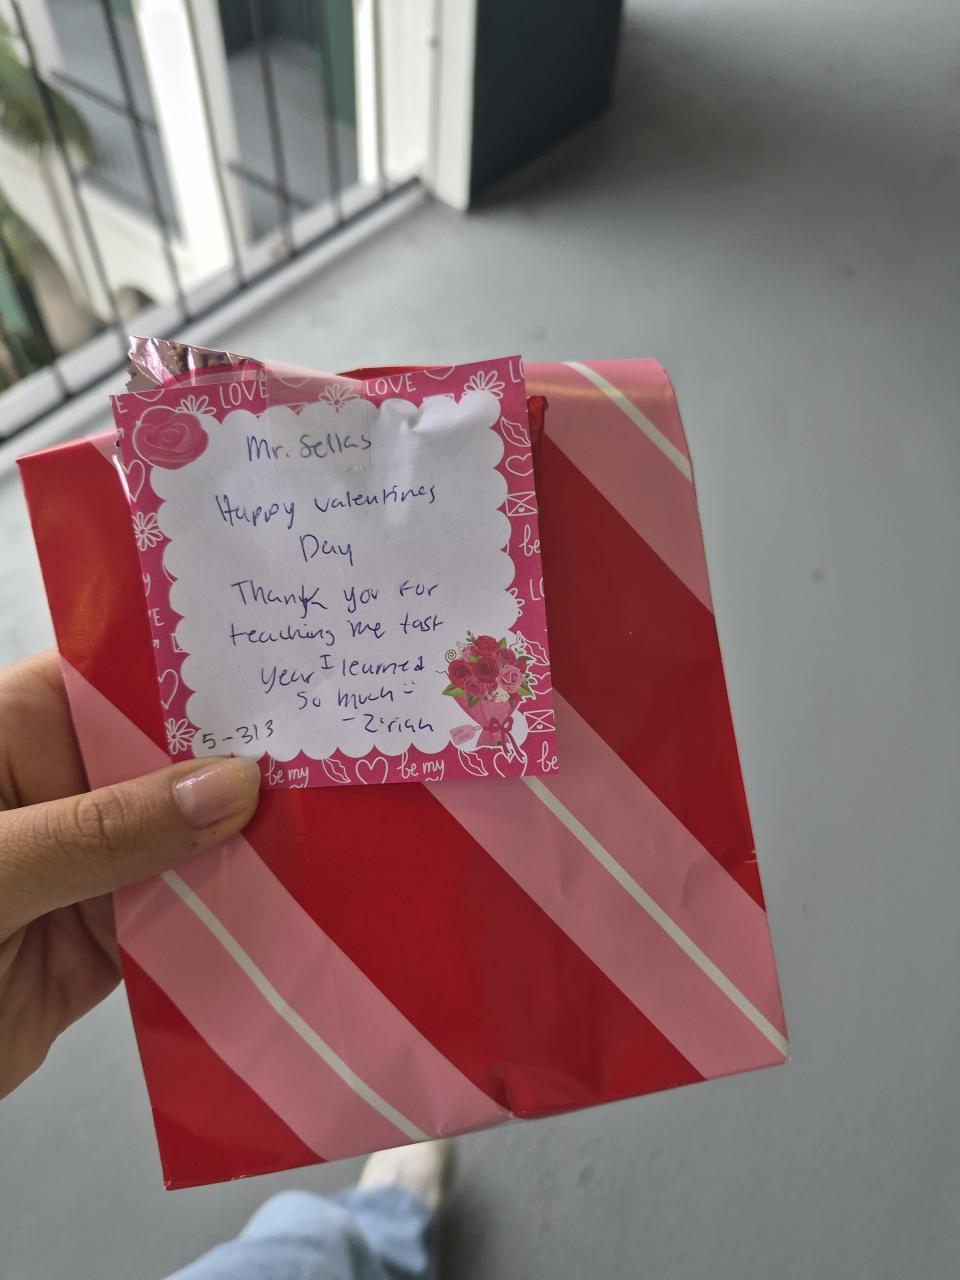 LOVE
LOVE
Mr. Sellas
Happy valentines
Day
Thank you for
teaching me last
year I learned
so much :)
5-313
be my
be my
be
be